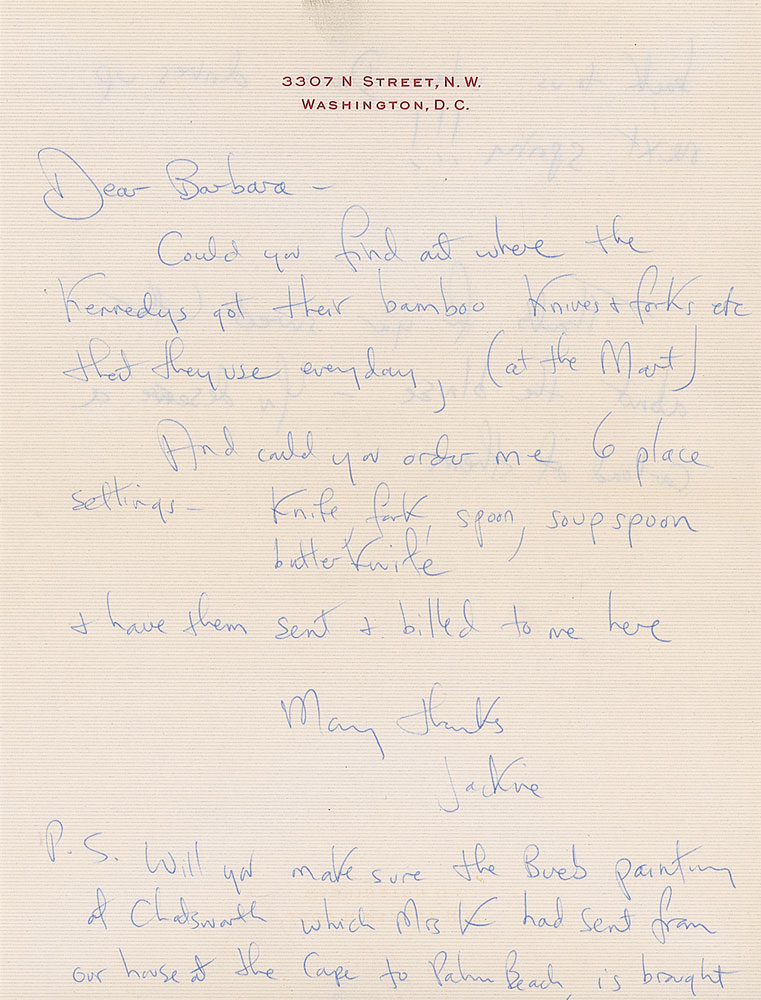 3307 N Street, N.W.
Washington, D.C.
Dear Barbara —
Could you find out where the
Kennedys got their bamboo Knives + forks etc
that they use everyday, (at the Mart)
And could you order me 6 place
settings — Knife, fork, spoon, soup spoon
butter Knife
+ have them sent + billed to me here
Many thanks
Jackie
P.S. Will you make sure the painting
of Chatsworth which Mrs K had sent from
our house at the Cape to Palm Beach, is brought